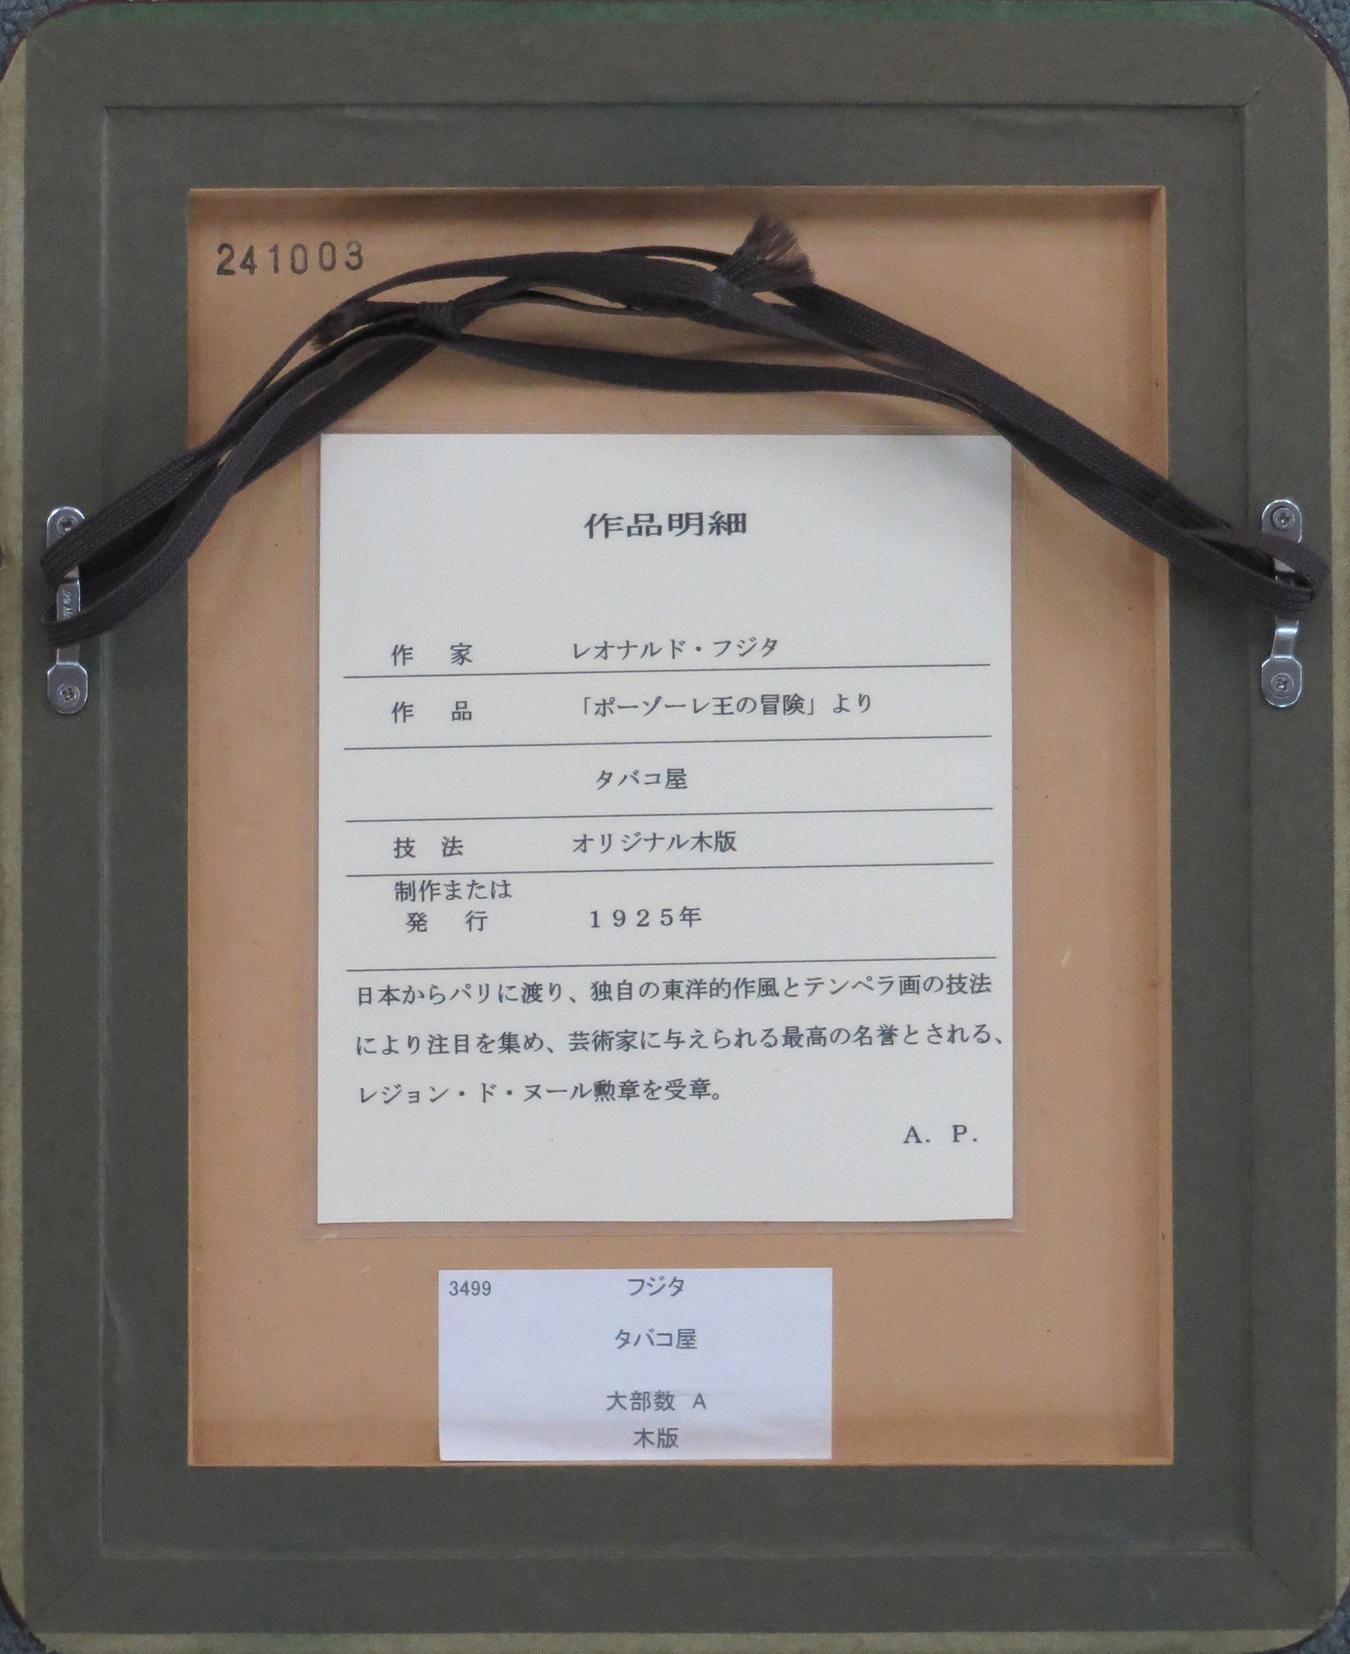 241003
作品明細
作　家　レオナルド・フジタ
作　品　「ポーゾーレ王の冒険」より
タバコ屋
技　法　オリジナル木版
制作または
発　行　１９２５年
日本からパリに渡り、独自の東洋的作風とテンペラ画の技法
により注目を集め、芸術家に与えられる最高の名誉とされる、
レジョン・ド・ヌール勲章を受章。
A. P.
3499　フジタ
タバコ屋
大部数 A
木版